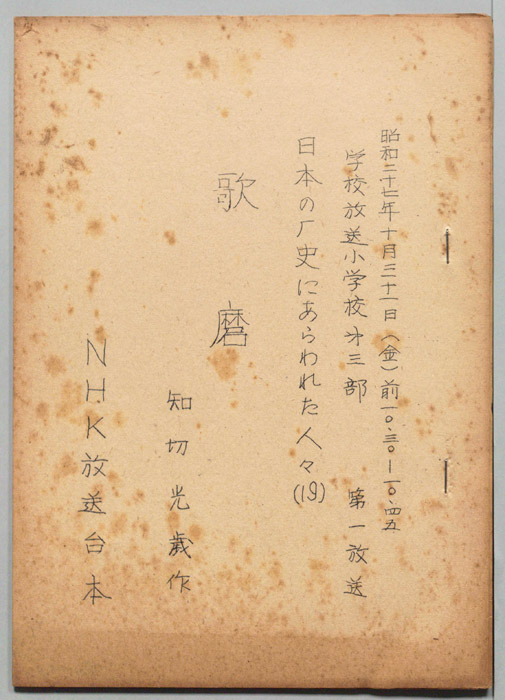 昭和二十七年十月三十一日(金)前一〇.三〇―一〇.四五
学校放送小学校第三部 第一放送
日本の厂史にあらわれた人々(19)
歌麿
知切光歳作
NHK放送台本